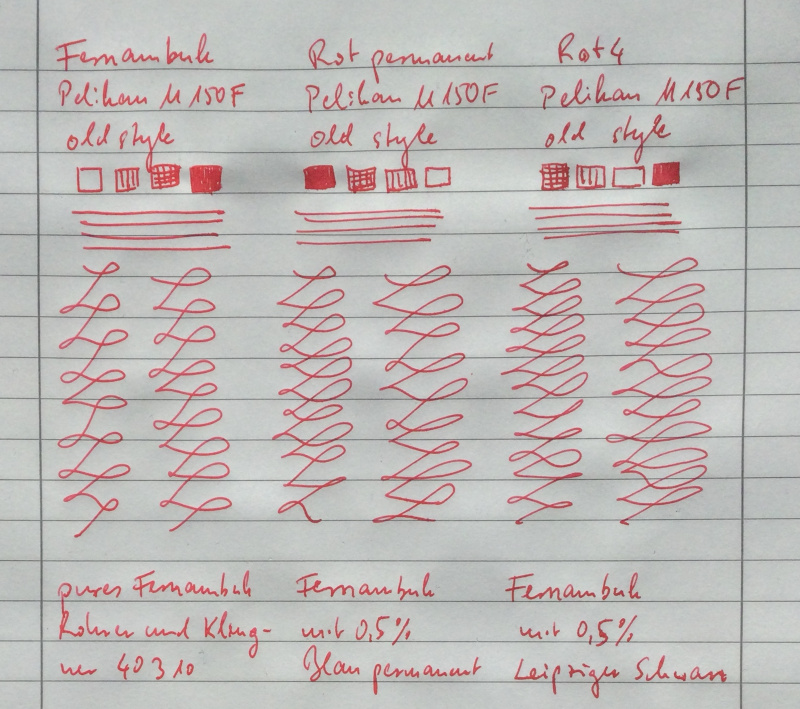 Fernambuk
Pelikan M150F
old style
Rot permanent
Pelikan M150F
old style
Rot 4
Pelikan M150F
old style
pures Fernambuk
Rohrer und Kling-
ner 40310
Fernambuk
mit 0,5%
Blau permanent
Fernambuk
mit 0,5%
Leipziger Schwarz